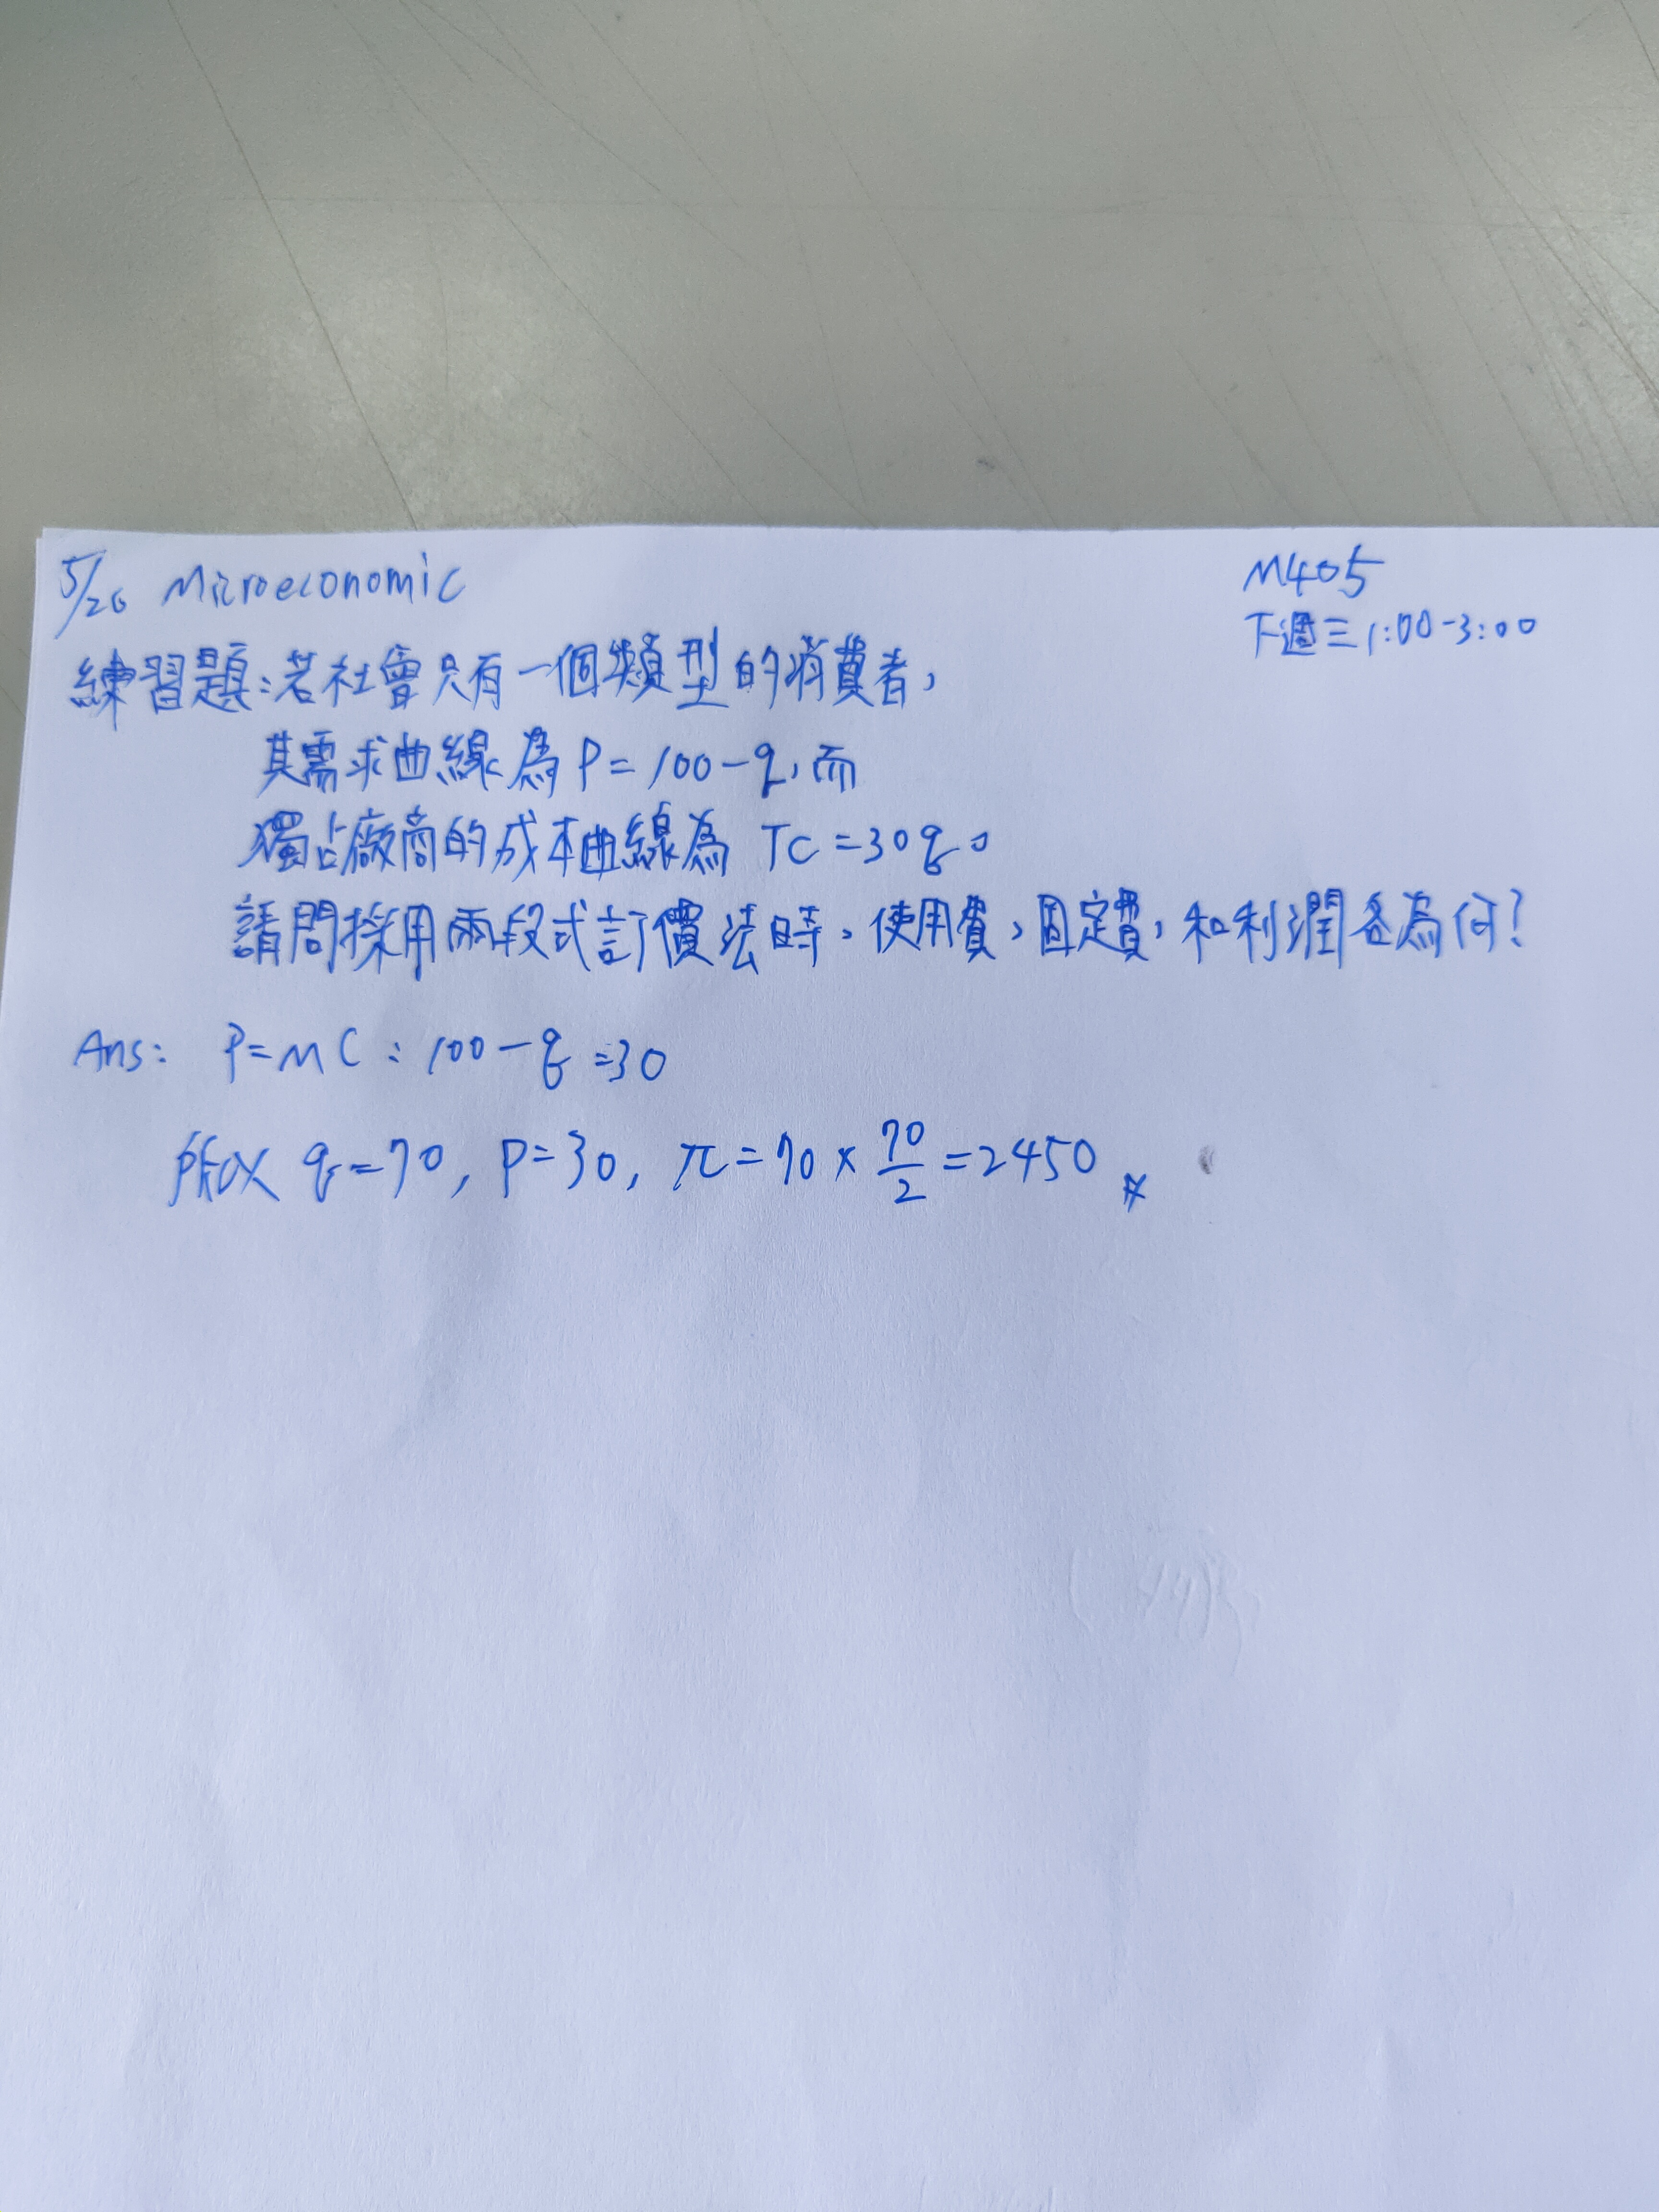 5/20 Microeconomic
M405
下週三 1:00-3:00
練習題:若社會只有一個類型的消費者,
其需求曲線為 P=100-q,而
獨占廠商的成本曲線為 TC=30q。
請問採用兩段式訂價法時,使用費,固定費,和利潤各為何?
Ans: P=MC: 100-q=30
所以 q=70, P=30, π=70×70/2=2450